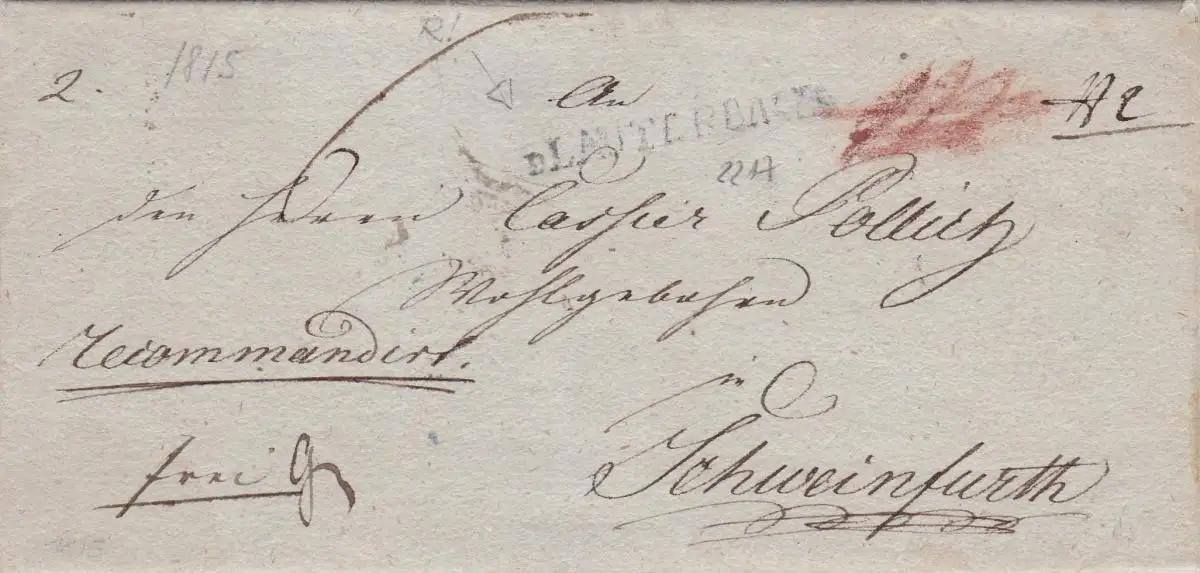 R!
1815
2.
An
D LAUTERBACH
22 H
den Herrn Cassier Pollich
Wohlgebohren
Recommandirt.
in
frei
Schweinfurth
1815